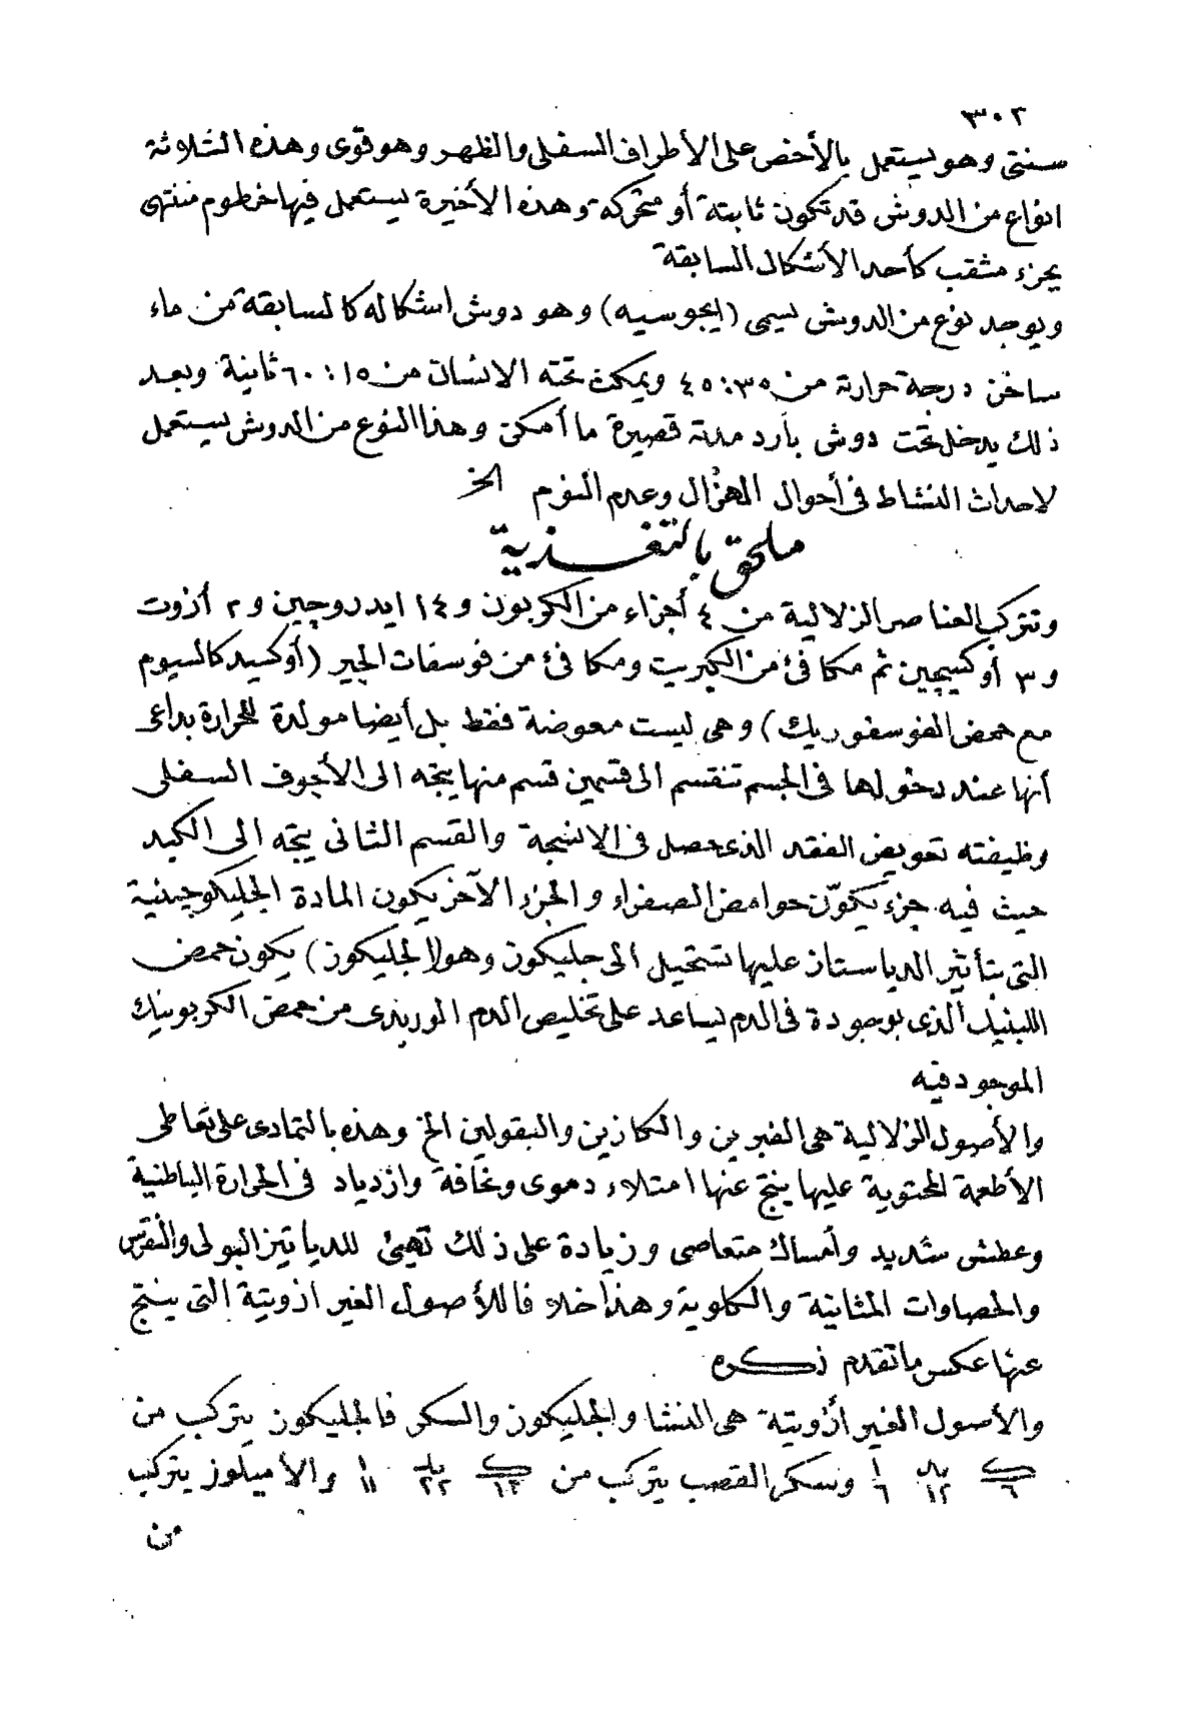 ٣٠٢
سنتى وهو يستعمل بالأخص على الأطراف السفلى والظهر وهو قوى وهذه الثلاثة
انواع من الدوش قد تكون ثابتة أو متحركة وهذه الأخيرة يستعمل فيها خرطوم منتهى
بجزء مثقب كأحد الأشكال السابقة
ويوجد نوع من الدوش يسمى (ايجوسيه) وهو دوش اشكاله كالسابقة من ماء
ساخن درجة حرارته من ٣٥ : ٤٥ ويمكث تحته الانسان من ١٥ : ٦٠ ثانية وبعد
ذلك يدخل تحت دوش بارد مدته قصيرة ما أمكن وهذا النوع من الدوش يستعمل
لاحداث النشاط فى أحوال الهزال وعدم النوم الخ
ملحق بالتغذية
وتتركب العناصر الزلالية من ٤ أجزاء من الكربون و ١٤ ايدروجين و ٢ أزوت
و ٣ أوكسيجين ثم مكافئ من الكبريت ومكافئ من فوسفات الجير (أوكسيد كالسيوم
مع حمض الفوسفوريك) وهى ليست معوضة فقط بل أيضا مولدة للحرارة بداعى
أنها عند دخولها فى الجسم تنقسم الى قسمين قسم منها يتجه الى الأجوف السفلى
وظيفته تعويض الفقد الذى حصل فى الانسجة والقسم الثانى يتجه الى الكبد
حيث فيه جزء يكوّن حوامض الصفراء والجزء الآخر يكون المادة الجليكوجينية
التى بتأثير الدياستاز عليها تستحيل الى جليكون وهو(الجليكوز) يكون حمض
اللبنيك الذى بوجوده فى الدم يساعد على تخليص الدم الوريدى من حمض الكربونيك
الموجود فيه
والأصول الزلالية هى الفبرين والكازين والبقولين الخ وهذه بالتمادى على تعاطى
الأطعمة المحتوية عليها ينتج عنها امتلاء دموى ونحافة وازدياد فى الحرارة الباطنية
وعطش شديد وأمساك متعاصى وزيادة على ذلك تهيئ للديابيتز البولى والنقرس
والحصاوات المثانية والكلوية وهذا خلا فا للأصول الغير ازوتية التى ينتج
عنها عكس ما تقدم ذكره
والأصول الغير أزوتية هى النشا والجليكوز والسكر فالجليكوز يتركب من
ك٦ يد١٢ ا٦ وسكر القصب يتركب من ك١٢ يد٢٢ ا١١ والأميلوز يتركب
من